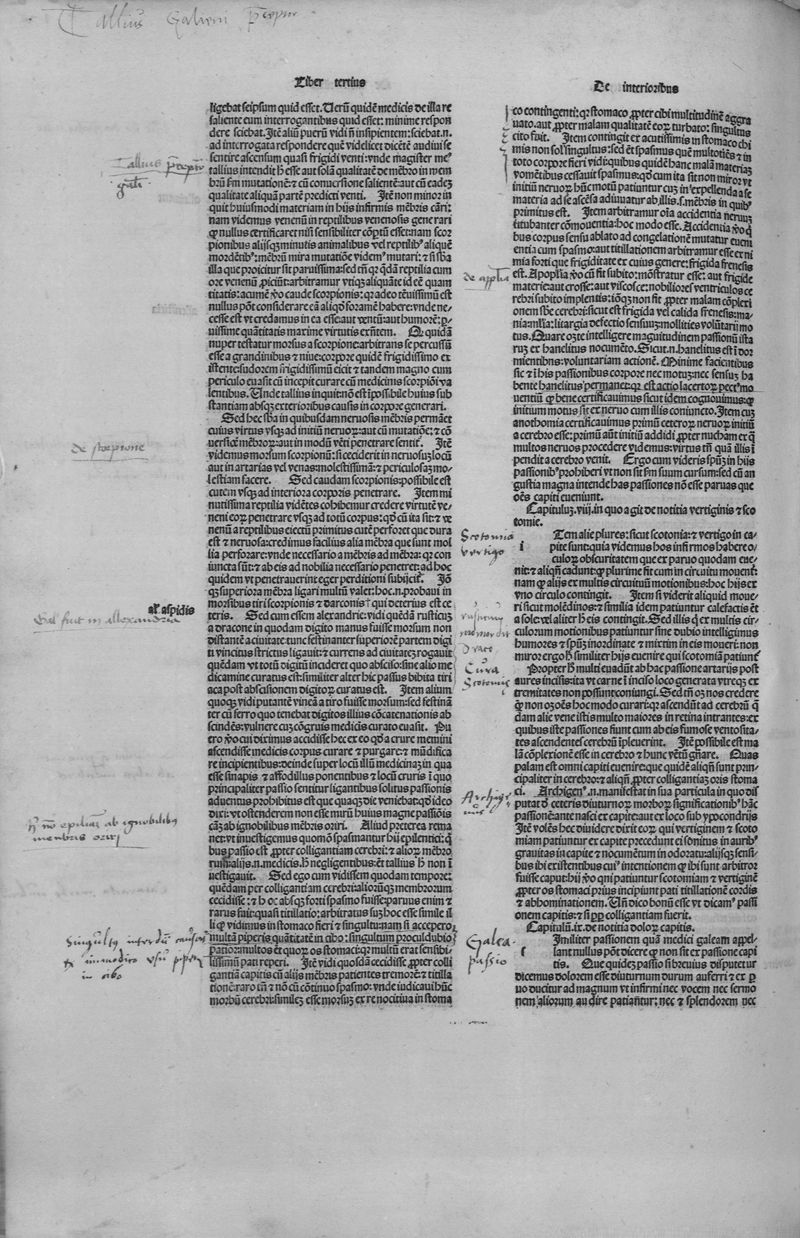 Tallius Galieni
Liber tertius
De interioribus
ligebat seipsum quid esset. Uerũ quidẽ medicis de illa re
saliente eum interrogantibus quid esset: minime respon
dere sciebat. Itẽ aliũ puerũ vidi nõ insipientem: sciebat.n.
ad interrogata respondere que videlicet dicẽt audiui se
sentire ascensum quasi frigidi venti: vnde magister me
tallius intendit esse aut solã qualitatẽ de mẽbro in mem
brũ mutationẽ: ⁊ cũ conuersione salientẽ: aut cũ eadez
qualitate aliquã partẽ predicti venti. Itẽ non minor in
quit huiusmodi materiam in hijs infirmis mẽbris cãri:
nam videmus venenũ in reptilibus venenosis generari
nullus certificaret nisi sensibiliter cõptũ esset: nam scor
pionibus alijsqz minutis animalibus vel reptilib aliquẽ
mordẽtib: mẽbrũ mira mutatiõe videm mutari:
illa que proicitur sit paruissima: sed reptilia cum
ore venenũ vtiqz aliquãte id eẽ quam
titatis: acumẽ caude scorpionis: adeo tẽuissimũ est
nullus põt considerare eã aliqd foramẽ habere: vnde ne
cesse est vt credamus in ea esse: aut vẽtũ: aut humorẽ:
uissime quãtitatis maxime virtutis exñtem. quidã
nuper testatur morsus a scorpione: arbitrans se percussũ
esse a grandinibus ⁊ niue: corpore quidẽ frigidissimo ex
istente: sudorem frigidissimũ eicit ⁊ tandem magno cum
periculo euasit cũ incepit curare cũ medicinis scorpiõi va
lentibus. Unde tallius inquit: nõ est ipossibile huius sub
stantiam absqz exterioribus causis in corpore generari.
Sed hec in quibusdam neruosis mẽbris permãet
cuius virtus vsqz ad initiũ neruoz: aut cũ mutatiõe: ⁊ cõ
uersiõe mẽbroz: aut in modũ vẽti penetrare sentit. Itẽ
videmus morsum scorpionũ: si ceciderit in neruosuz locũ
aut in artarias vel venas: molestissimã: ⁊ periculosaz mo
lestiam facere. Sed caudam scorpionis: possibile est
cutem vsqz ad interiora corporis penetrare. Item mi
nutissima reptilia vidẽtes cohibemur credere virtutẽ ve
neni eoz penetrare vsqz ad totũ corpus: qd cũ ita sit: ⁊ ve
nenũ a reptilibus eiectũ primitus cutẽ perforet que dura
est ⁊ neruosa: credimus facilius alia mẽbra que sunt mol
lia perforare: vnde necessario a mẽbris ad mẽbra: con
iuncta sũt: ⁊ ab eis ad nobilia necessario penetret: ad hoc
quidem vt penetrauerint eger perditioni subijcit. Jõ
qz superiora mẽbra ligari multũ valet: hoc.n. probaui in
morsibus tiri scorpionis ⁊ darconis: qui deterius est ce
teris. Sed cum essem alexandrie: vidi quedã rusticuz
a dracone in quodam digito manus fuisse morsum non
distantẽ a ciuitate tunc festinanter superiorẽ partem digi
ti vinctus strictius ligauit: ⁊ currens ad ciuitatẽ: rogauit
quẽdam vt totũ digitũ incideret quo absciso: sine alio me
dicamine curatus est: similiter alter hic passus bibita tiri
aca post abscisionem digitoz curatus est. Item alium
quoqz vidi putantẽ vineã a tiro fuisse morsum: sed festinã
ter cũ ferro quo tenebat digitos illius cõcatenationis ab
scindẽs: vulnere cuz cõgruis medicis curato euasit. Pu
ero o cui diximus accidisse hec ex eo qd a crure memini
ascendisse medicis corpus curare ⁊ purgare: ⁊ mũdifica
re incipientibus: deinde super locũ illũ medicinaz in qua
esset sinapis ⁊ affodillus ponentibus ⁊ locũ cruris i quo
principaliter passio sentitur ligantibus solitus passionis
aduentus prohibitus est que quaqz die veniebat: qd ideo
dixi: vt ostenderem non esse mirũ huius magne passiõis
cãz ab ignobilibus mẽbris oriri. Aliud preterea rema
net: vt inuestigemus quomõ spasmantur hij epilentici:
bus passio est propter colligantiam cerebri: ⁊ alioz mẽbro
alijs.n. medicis negligentibus: et tallius nõ i
uestigauit. Sed ego cum vidissem quodam tempore:
quẽdam per colligantiam cerebri: alioruqz membrorum
cecidisse: ⁊ hoc absqz forti spasmo fuisse: paruus enim ⁊
rarus fuit: quasi titillatio: arbitratus suz hoc esse simile il
li vidimus in stomaco fieri ⁊ singultu: nam si accepero
multã piperis quãtitatẽ in cibo: singultum proculdubio
patior: multos et quoz os stomaci multũ erat sensibi
lissimũ pati reperi. Itẽ vidi quosdã cecidisse, propter colli
gantiã capitis cũ alijs mẽbris patientes tremorẽ: ⁊ titilla
tionẽ: raro ⁊ nõ cũ cõtinuo spasmo: vnde iudicaui hũc
morbũ cerebri: similez esse morsuz ex re nocitiua in stoma
aspidis
de scorpione
Sal fuit in allexandria
epiliaz ab ignobilibus
menbris oriri
Singultus interdũ
ex immodico usu
in cibo
co contingenti: stomaco propter cibi multitudinẽ aggra
uato. aut propter malam qualitatẽ eoz turbato: singultus
cito fuit. Item contingit ex acutissimis in stomaco cibi
mis non sol singultus: sed et spasmus que multotiẽs ⁊ in
toto corpore fieri vidi: quibus quidẽ hanc malã materiaz
vomẽtibus cessauit spasmus: qd cum ita sit nõ miror vt
initiũ neruoz hũc motũ patiuntur cuz in expellenda a se
materia ad se ascẽsa adiuuatur ab illis.s. mẽbris in quib
primitus est. Item arbitramur oĩa accidentia neruuz
titubanter cõmouentia: hoc modo esse. Accidentia
bus corpus sensu ablato ad congelationẽ mutatur eueni
entia cum spasmo: aut titillationem arbitramur esse ex ni
mia forti que frigiditate ex cuius genere: frigida frenesis
est. Apoplia cũ fit subito: mõstratur esse: aut frigide
materie: aut crosse: aut viscose: nobiliores ventriculos ce
rebri subito implentis: iõqz non fit propter malam cõplexi
onem cerebri: sicut est frigida vel calida frenesis: ma
nia: litargia defectio sensuuz: mollities volũtarij mo
tus. Quare ozte intelligere magnitudinem passionũ ista
ruz ex hanelitus nocumẽto. Sicut.n. hanelitus est i dor
mientibus: voluntariam actionẽ. Minime facientibus
sic ⁊ i hijs passionibus corpore nec motuz: nec sensuz ha
bente hanelitus permanet: est actio lacertoz pect mo
uentiũ bene certificauimus sicut idem cognouimus:
initium motus sit ex neruo cum illis coniuncto. Item cuz
anothomia certificauimus primũ ceteroz neruoz initiũ
a cerebro esse: primũ aũt initiũ addidi propter nucham ex
multos neruos procedere videmus: virtus tñ quã illis i
pendit a cerebro venit. Ergo cum videris spũz in hijs
passionib prohiberi vt non sit suum cursum: sed cũ an
gustia magna intende has passiones nõ esse paruas que
oẽs capiti eueniunt.
Capituluz.viij. in quo agit de notitia vertiginis ⁊ sco
tomie.
Item alie plures: sicut scotonia: ⁊ vertigo in ca
pite sunt: quia videmus hos infirmos habere o
culoz obscuritatem que ex paruo quodam eue
nit: ⁊ aliqñ cadunt: plurime fit cum in circuitu mouent:
nam alijs ex multis circuitum motionibus: hoc hijs ex
vno circulo contingit. Item si viderit aliquid moue
ri sicut molẽdinos: ⁊ similia idem patiuntur calefactis et
a sole vel aliter eis contingit. Sed illis ex multis cir
culorum motionibus patiuntur sine dubio intelligimus
humores ⁊ spũz inordinate ⁊ mixtim in eis moueri: non
miror ergo similiter hijs euenire qui scotomiã patiunt
Propter multi euadũt ab hac passione artarijs post
aures incisis: ita vt carne i inciso loco generata vtreqz ex
tremitates non possunt coniungi. Sed tñ ozns credere
non ozoẽs hoc modo curari: ascendũt ad cerebrũ
dam alie vene istis multo maiores in retina intrantes: ex
quibus iste passiones fiunt cum ab eis fumose ventosita
tes ascendentes cerebrũ ipleuerint. Itẽ possibile est ma
lã cõplexionẽ esse in cerebro ⁊ hunc vẽtũ gñare. Quas
palam est omni capiti euenire: que quidẽ aliqñ sunt prin
cipaliter in cerebro: ⁊ aliqñ, propter colligantiaz oris stoma
ci. Archigen.n. manifestat in sua particula in quo dis
putat de ceteris diuturnoz morboz significationib hãc
passionẽ ante nasci ex capite: aut ex loco sub ypocondrijs
Itẽ volẽs hec diuidere dixit eorz qui vertiginem ⁊ scoto
miam patiuntur ex capite precedunt ei sõnitus in aurib
grauitas in capite ⁊ nocumẽtum in odoratu: alijsqz sensi
bus ibi existentibus cui intentionem ibi sunt arbitror
fuisse caput hij o qui patiuntur scotomiam ⁊ vertiginẽ
propter os stomaci prius incipiunt pati titillationẽ cordis
⁊ abhominationem. Uñ dico bonũ esse vt dicam passi
onem capitis: ⁊ si colligantiam fuerit.
Capitulũ.ix. de notitia doloz capitis.
Imiliter passionem quã medici galeam appel
lant nullus põt dicere non sit ex passione capi
tis. Que quidez passio si breuius disputetur
dicemus dolorem esse diuturnum durum auferri ⁊ ex
uo ducitur ad magnum vt infirmi nec vocem nec sermo
nem aliorum audire patiantur: nec ⁊ splendorem nec
de applia
Scotomia
vertigo
Draco
Cura
Scotomie
Archige
Galea
passio